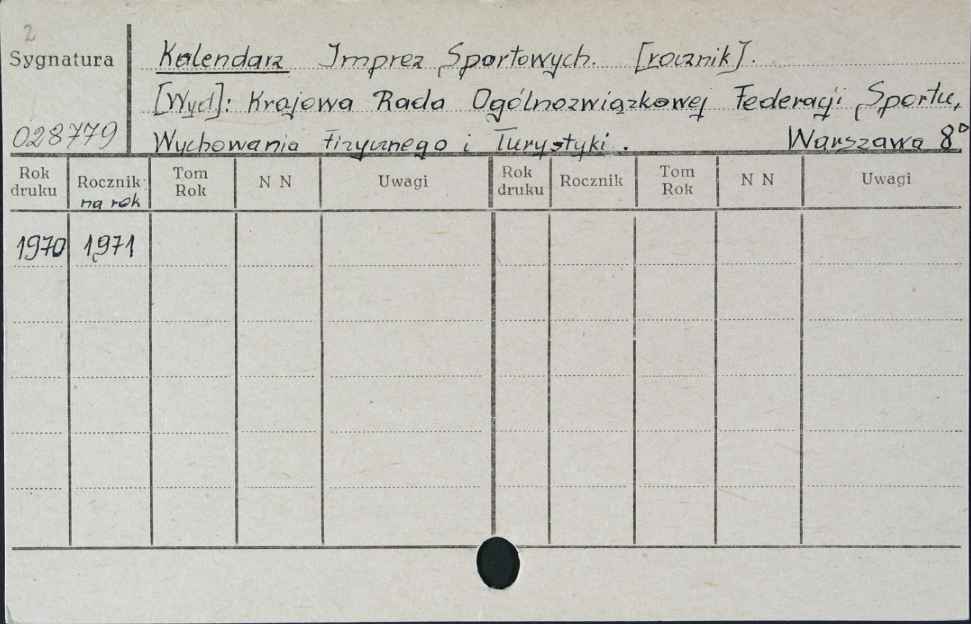 2
Sygnatura
Kalendarz Imprez Sportowych. [rocznik].
[Wyd]: Krajowa Rada Ogólnozwiązkowej Federacji Sportu,
028779
Wychowania Fizycznego i Turystyki. Warszawa 8°
Rok druku Rocznik na rok Tom Rok N N Uwagi Rok druku Rocznik Tom Rok N N Uwagi
1970 1971